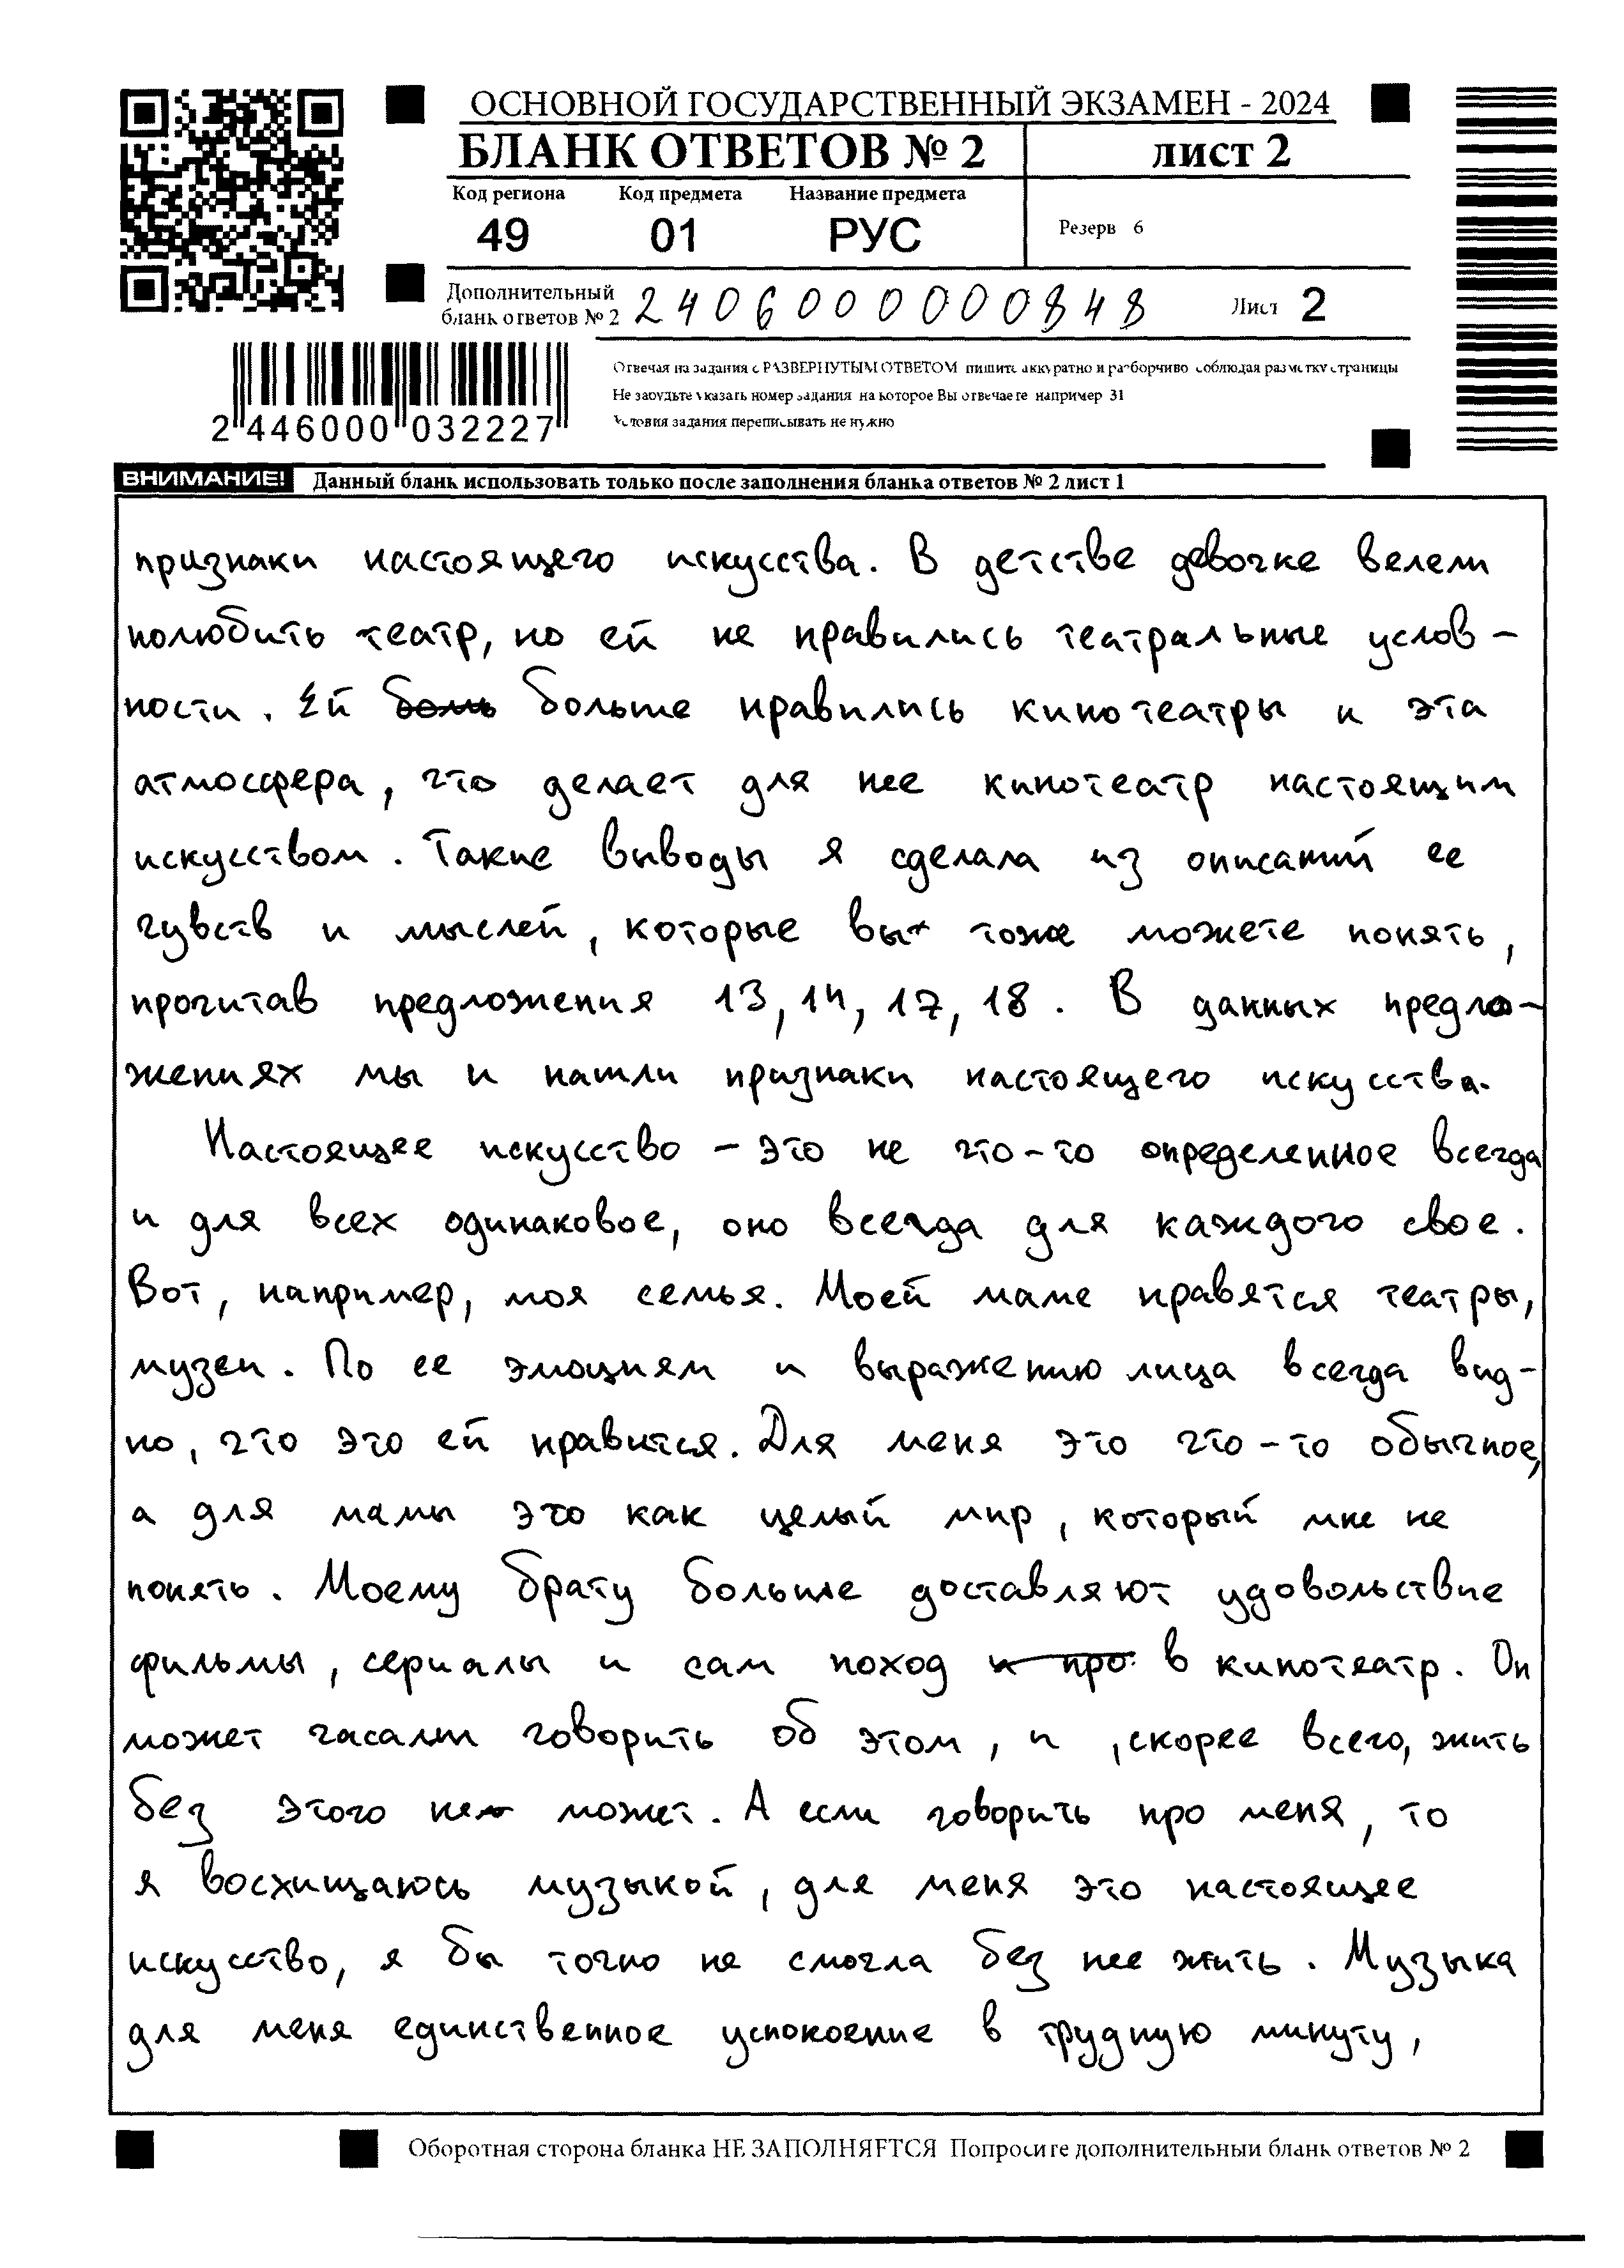 ОСНОВНОЙ ГОСУДАРСТВЕННЫЙ ЭКЗАМЕН - 2024
БЛАНК ОТВЕТОВ № 2
ЛИСТ 2
Код региона Код предмета Название предмета
49 01 РУС
Резерв 6
Дополнительный
бланк ответов № 2
2406000000848
Лист 2
2 446000 032227
Отвечая на задания с РАЗВЕРНУТЫМ ОТВЕТОМ пишите аккуратно и разборчиво соблюдая разметку страницы
Не забудьте указать номер задания на которое Вы отвечаете например 31
Условия задания переписывать не нужно
ВНИМАНИЕ! Данный бланк использовать только после заполнения бланка ответов № 2 лист 1
признаки настоящего искусства. В детстве девочке велели
полюбить театр, но ей не нравились театральные услов-
ности. Ей боль больше нравились кинотеатры и эта
атмосфера, что делает для нее кинотеатр настоящим
искусством. Такие выводы я сделала из описаний ее
чувств и мыслей, которые вы тоже можете понять,
прочитав предложения 13, 14, 17, 18. В данных предло-
жениях мы и нашли признаки настоящего искусства.
Настоящее искусство – это не что-то определенное всегда
и для всех одинаковое, оно всегда для каждого свое.
Вот, например, моя семья. Моей маме нравятся театры,
музеи. По ее эмоциям и выражению лица всегда вид-
но, что это ей нравится. Для меня это что-то обычное,
а для мамы это как целый мир, который мне не
понять. Моему брату больше доставляют удовольствие
фильмы, сериалы и сам поход и про в кинотеатр. Он
может часами говорить об этом, и ,скорее всего, жить
без этого не может. А если говорить про меня, то
я восхищаюсь музыкой, для меня это настоящее
искусство, я бы точно не смогла без нее жить. Музыка
для меня единственное успокоение в трудную минуту,
Оборотная сторона бланка НЕ ЗАПОЛНЯЕТСЯ Попросите дополнительный бланк ответов № 2